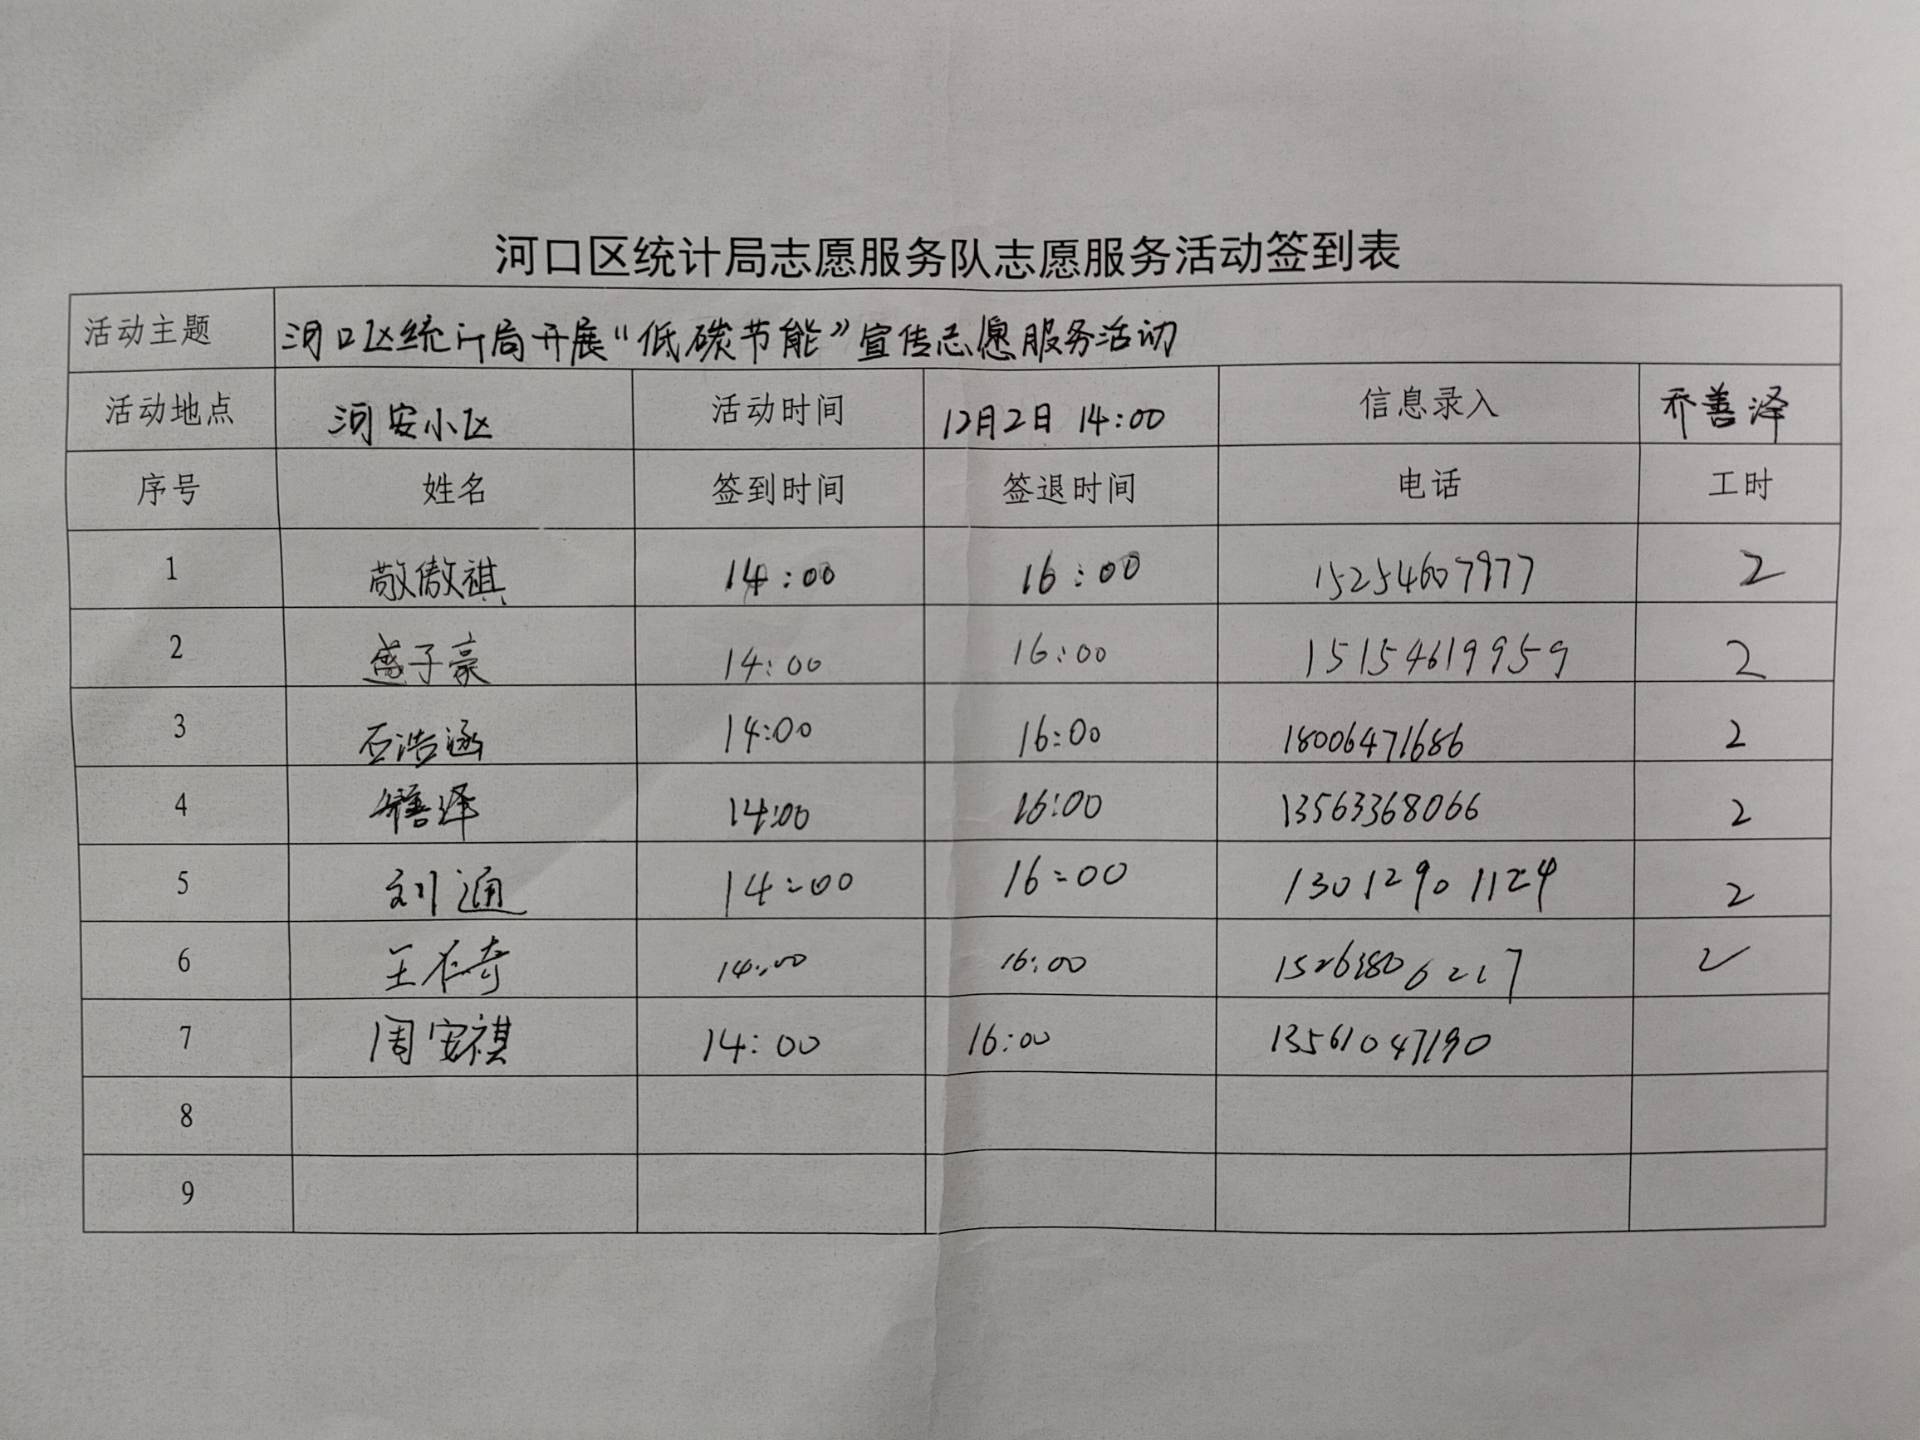 河口区统计局志愿服务队志愿服务活动签到表
活动主题 河口区统计局开展“低碳节能”宣传志愿服务活动
活动地点 河安小区 活动时间 12月2日 14:00 信息录入 乔善泽
序号 姓名 签到时间 签退时间 电话 工时
1 敬傲祺 14:00 16:00 15254607977 2
2 盛子豪 14:00 16:00 15154619959 2
3 石浩涵 14:00 16:00 18006471686 2
4 乔善泽 14:00 16:00 13563368066 2
5 刘通 14:00 16:00 13012901124 2
6 王 奇 14:00 16:00 2
7 周安祺 14:00 16:00 13561047190
8
9